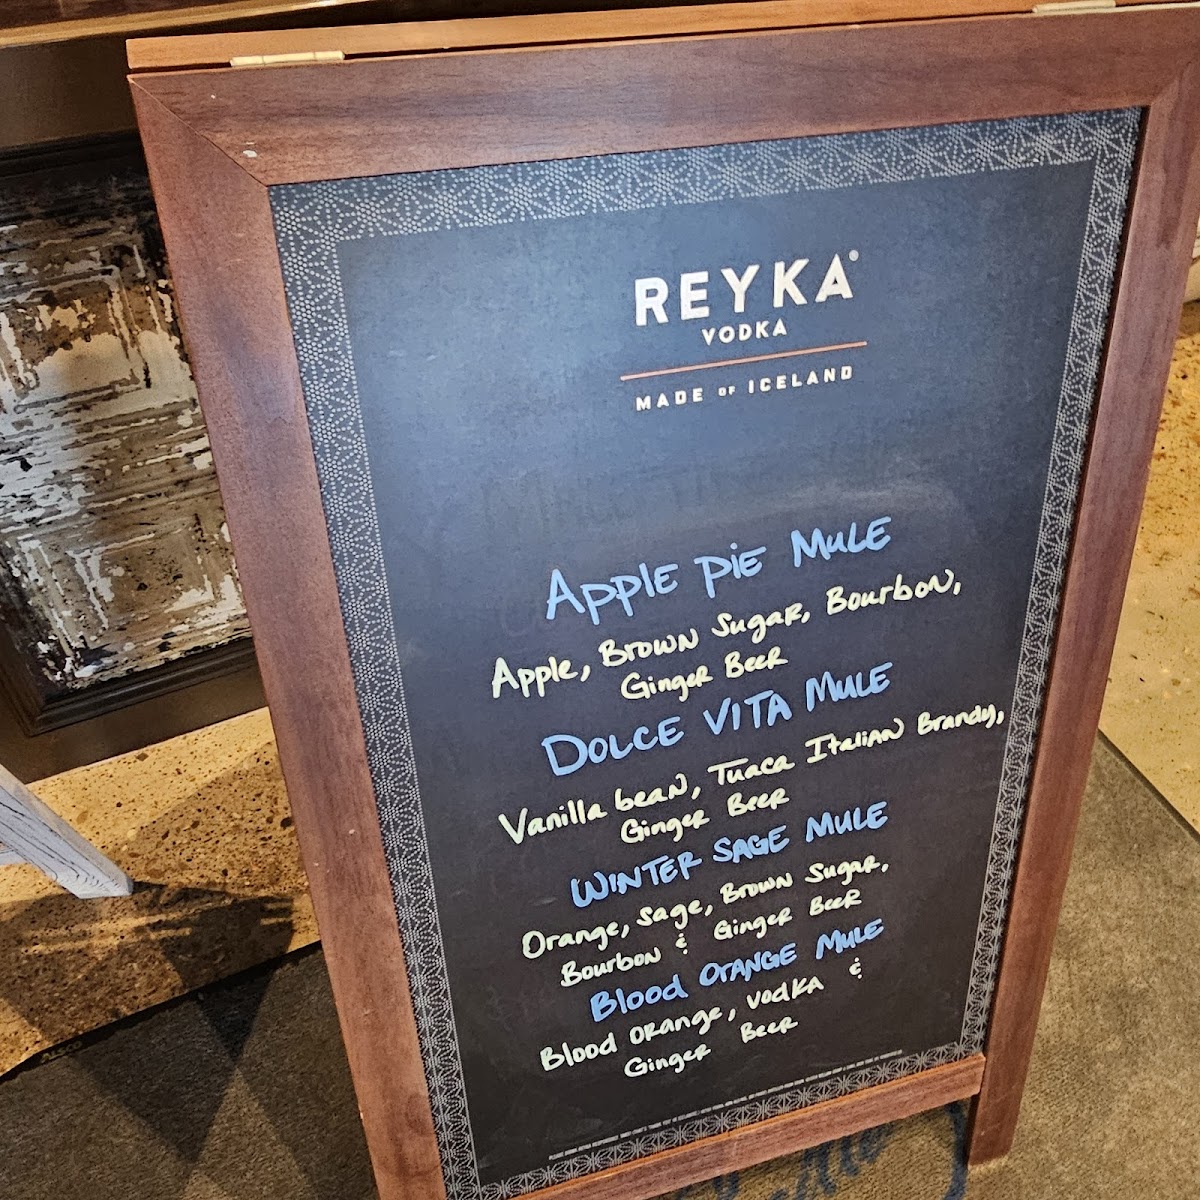 REYKA®
VODKA
MADE OF ICELAND
Apple Pie Mule
Apple, Brown Sugar, Bourbon,
Ginger Beer
Dolce Vita Mule
Vanilla bean, Tuaca Italian Brandy,
Ginger Beer
Winter Sage Mule
Orange, Sage, Brown Sugar,
Bourbon & Ginger Beer
Blood Orange Mule
Blood Orange, Vodka &
Ginger Beer